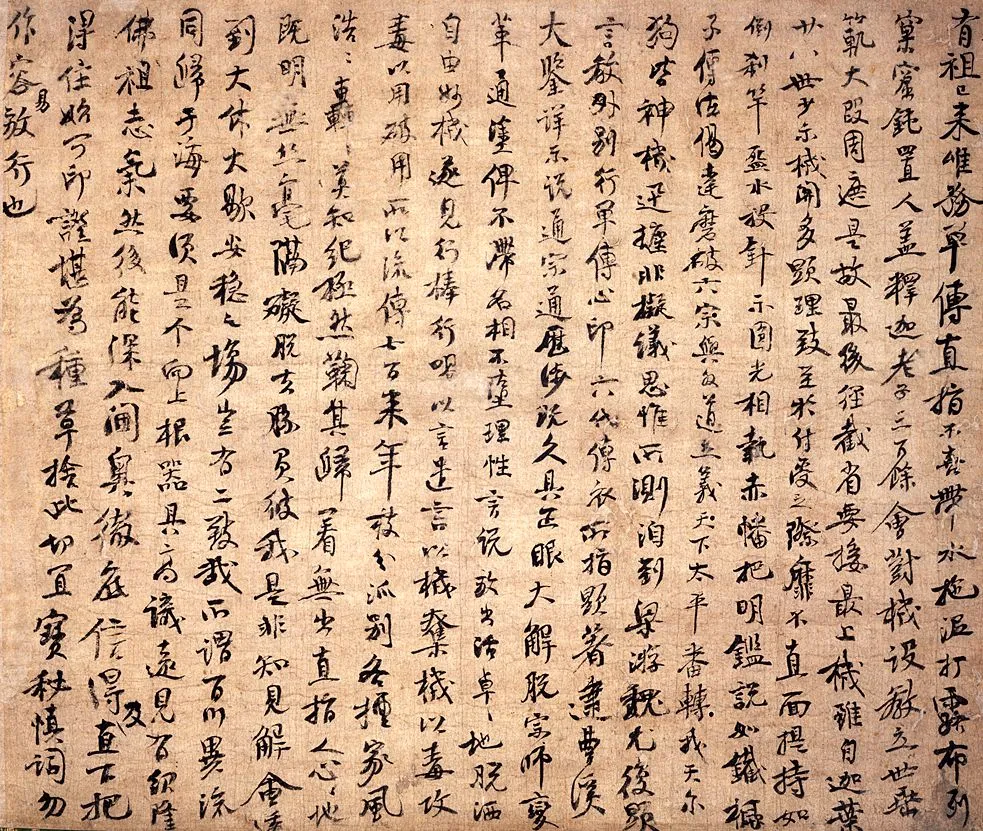 有祖已来唯務單傳直指不喜帶水拖泥打露布列
窠窟鈍置人蓋釋迦老子三百餘會對機設教立世垂
範大段周遮是故最後徑截省要接最上機雖自迦葉
廿八世少示機關多顯理致至於付受之際靡不直面提持如
倒刹竿盋水投針示圓光相執赤幡把明鑑説如鐵橛
子傳法偈達磨破六宗與外道立義天下太平番轉我天尔
狗皆神機迅捷非擬議思惟所測洎到梁游魏尤復顯
言教外別行單傳心印六代傳衣所指顯著逮曹溪
大鑒詳示説通宗通歷涉既久具正眼大解脱宗師變
革通塗俾不滯名相不墮理性言説放出活卓〻地脱洒
自由妙機遂見行棒行喝以言遣言以機奪機以毒攻
毒以用破用所以流傳七百来年枝分派別各擅家風
浩〻轟〻莫知紀極然鞠其歸著無出直指人心〻地
既明無絲毫隔礙脱去勝負彼我是非知見解會透
到大休大歇安穏之場豈有二致哉所謂百川異流
同歸于海要須是个向上根器具高識遠見有紹隆
佛祖志氣然後能深入閫奧徹底信得及直下把
得住始可印證堪為種草捨此切宜寳秘慎詞勿
作容易放行也